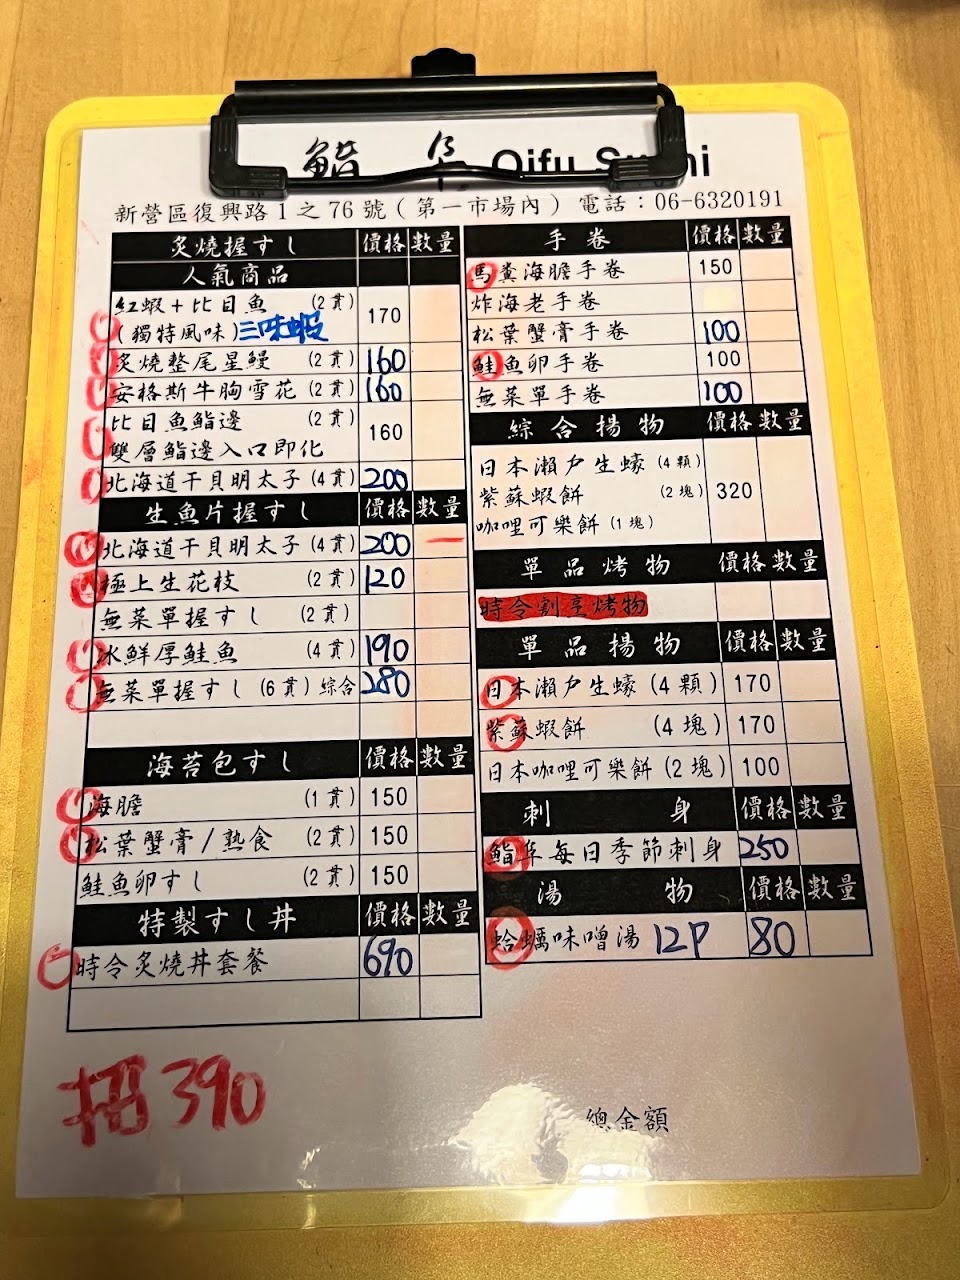 鮨 阜 Qifu Sushi
新營區復興路1之76號(第一市場內) 電話:06-6320191
炙燒握すし 價格 數量
人氣商品
紅蝦+比目魚 (2貫) 170
(獨特風味)三味蝦
炙燒整尾星鰻 (2貫) 160
安格斯牛胸雪花 (2貫) 160
比目魚鮨邊 (2貫) 160
雙層鮨邊入口即化
北海道干貝明太子 (4貫) 200
生魚片握すし 價格 數量
北海道干貝明太子 (4貫) 200 一
極上生花枝 (2貫) 120
無菜單握すし (2貫)
冰鮮厚鮭魚 (4貫) 190
無菜單握すし (6貫) 綜合 280
海苔包すし 價格 數量
海膽 (1貫) 150
松葉蟹膏/熟食 (2貫) 150
鮭魚卵すし (2貫) 150
特製すし丼 價格 數量
時令炙燒丼套餐 690
招390
手卷 價格 數量
馬糞海膽手卷 150
炸海老手卷
松葉蟹膏手卷 100
鮭魚卵手卷 100
無菜單手卷 100
綜合揚物 價格 數量
日本瀨戶生蠔 (4顆) 320
紫蘇蝦餅 (2塊)
咖哩可樂餅 (1塊)
單品烤物 價格 數量
時令割烹烤物
單品揚物 價格 數量
日本瀨戶生蠔 (4顆) 170
紫蘇蝦餅 (4塊) 170
日本咖哩可樂餅 (2塊) 100
刺身 價格 數量
鮨阜每日季節刺身 250
湯物 價格 數量
蛤蠣味噌湯 12P 80
總金額